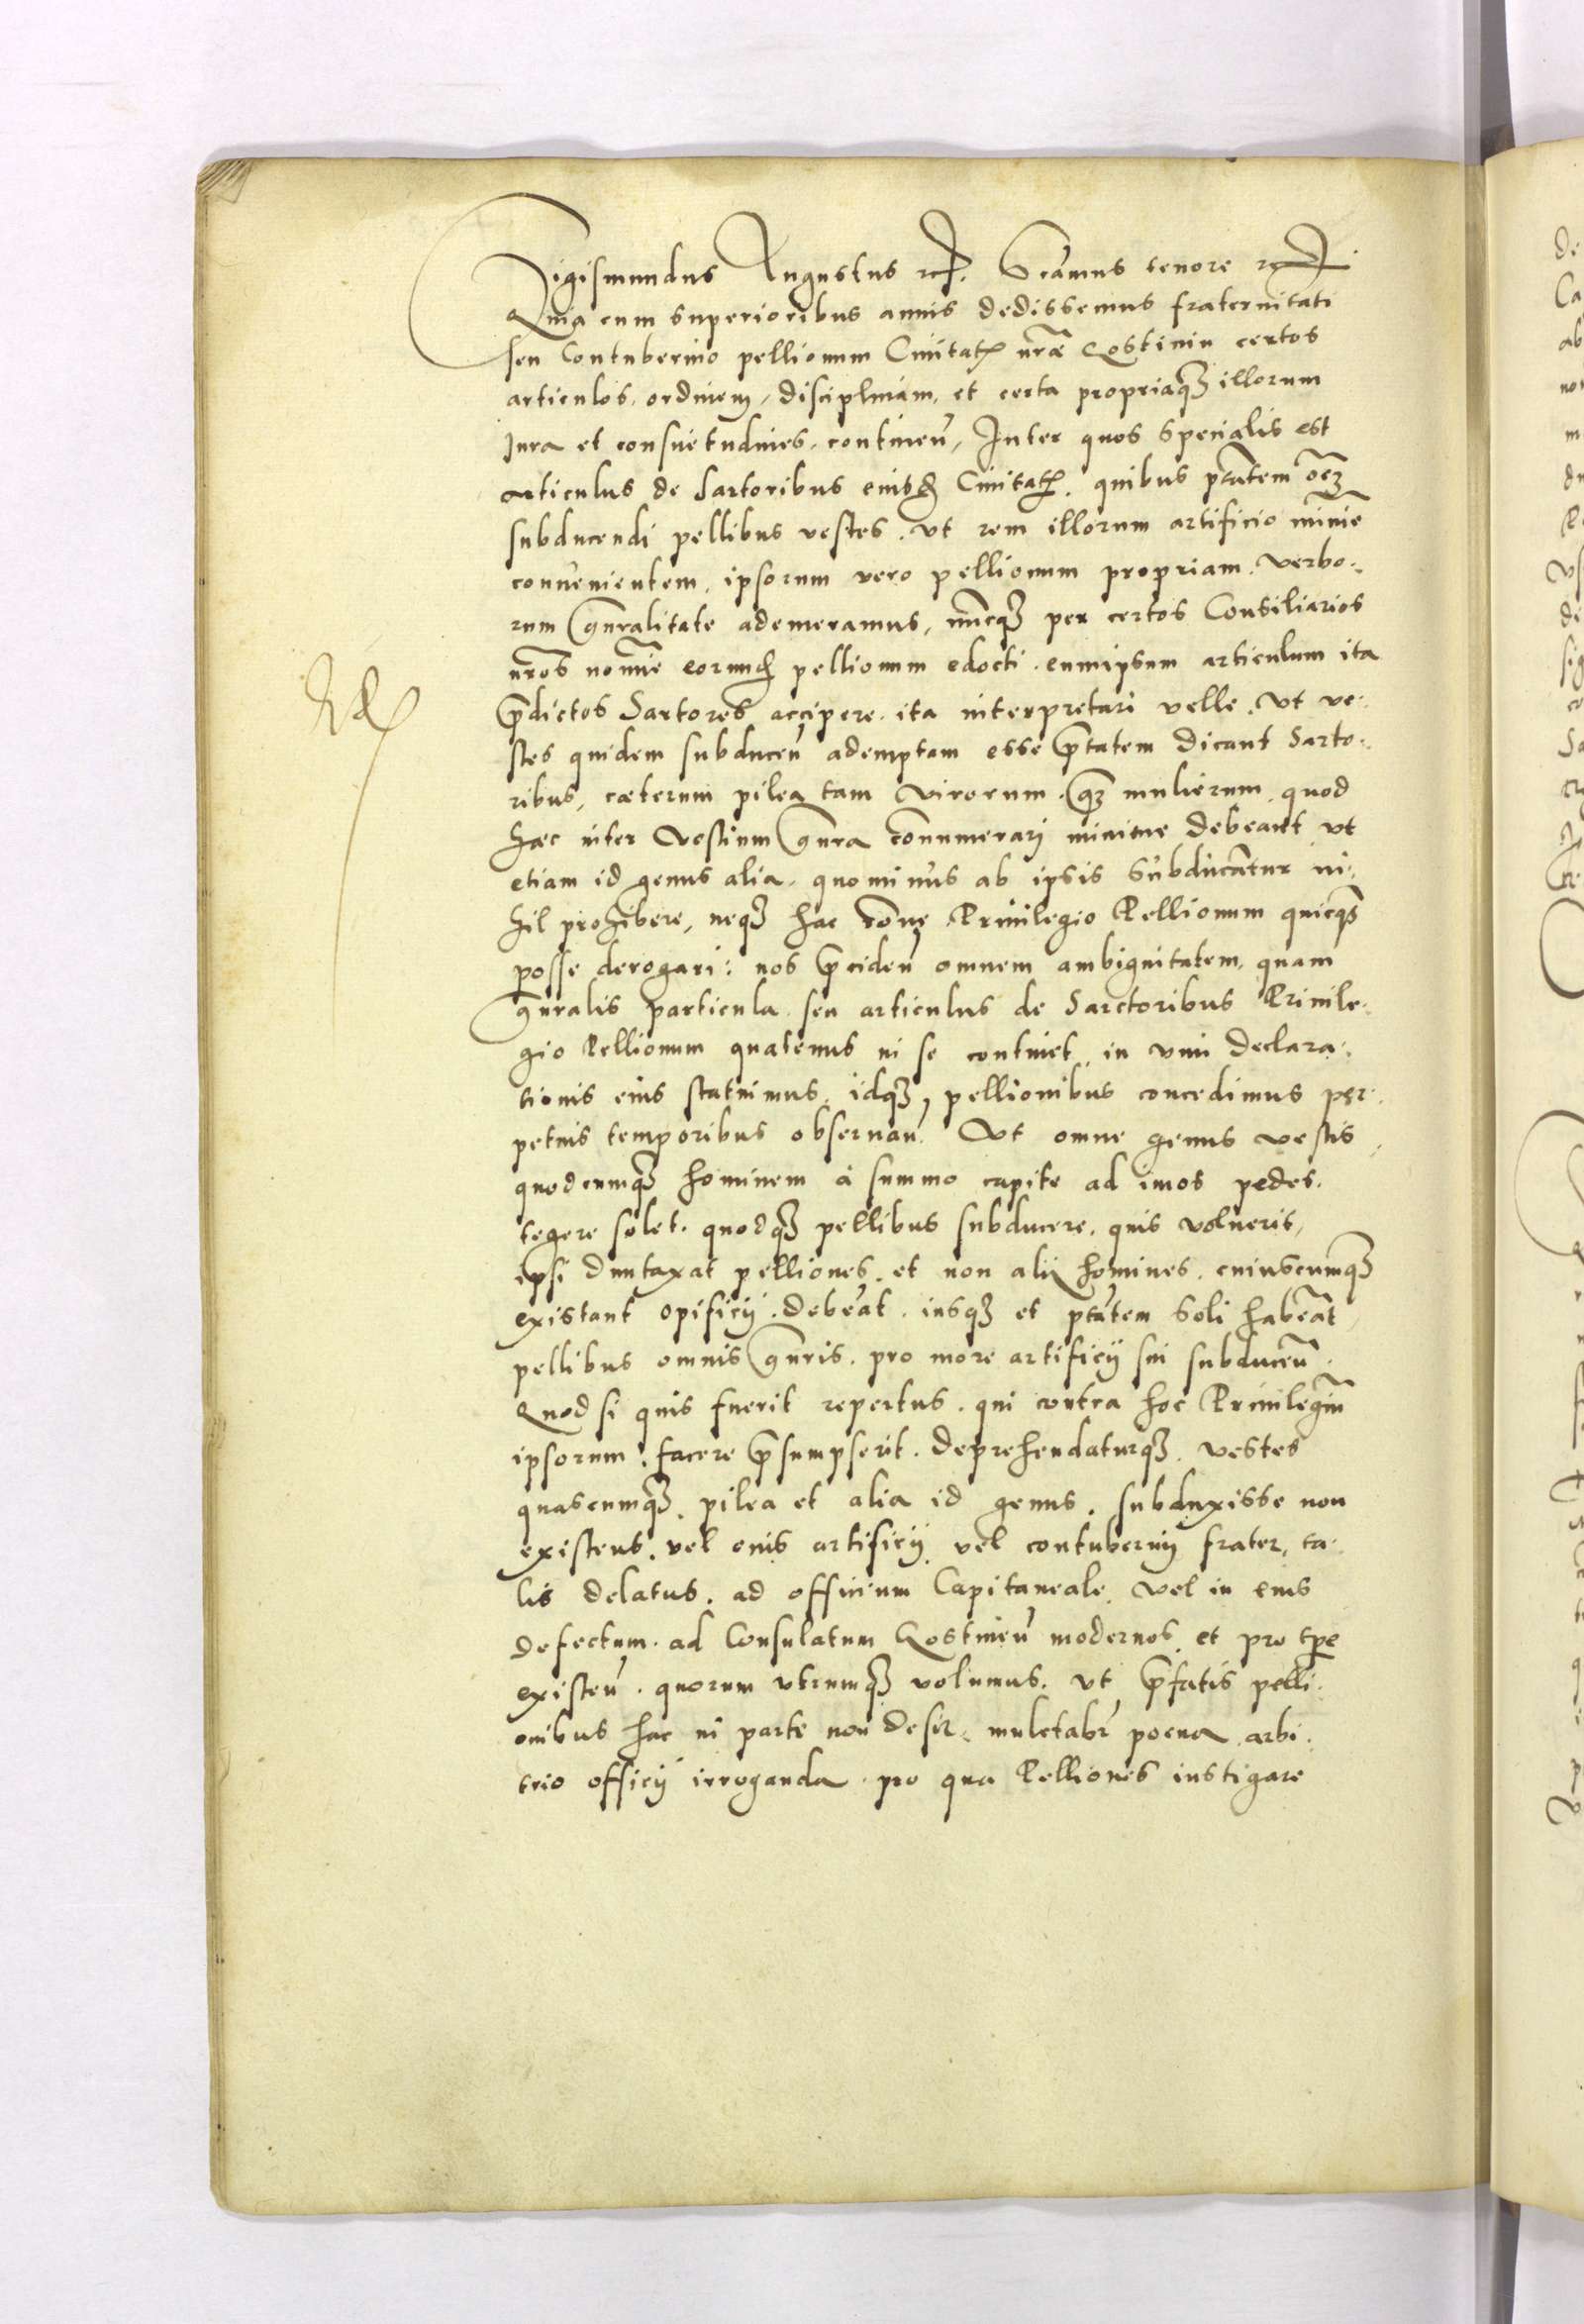 Sigismundus Augustus etc. Scāmus tenore etc.
Quia cum superioribus annis dedissemus fraternitati
seu Contubernio pellionum Ciuitatꝭ nrāe Costinīn certos
articulos, ordinem, disciplinam, et certa propriaqꝫ illorum
Iura et consuetudines, continen̄, Inter quos specialis est
articulus de Sartoribus eiusđ Ciuitatꝭ, quibus ptātem oēꝫ
subducendi pellibus vestes, vt rem illorum artificio minīe
conuenientem, ipsorum vero pellionum propriam, verbo-
rum gn̄ralitate ademeramus, nuncqꝫ per certos Consiliarios
nrōs nomīe eorunđ pellionum edocti, eumipsum articulum ita
p̄dictos Sartores accipere, ita interpretari velle, vt ve-
stes quidem subducen̄ ademptam esse ptātem dicant Sarto-
ribus, cæterum pilea tam virorum, qꝫ mulierum, quod
hæc inter Vestium gn̄ra connumerari minime debeant vt
etiam id genus alia, quominus ab ipsis subducātur ni-
hil prohibere, neqꝫ hac rōne Priuilegio Pellionum quicqꝫ
posse derogari: nos p̄ciden̄ omnem ambiguitatem, quam
gn̄ralis particula, seu articulus de Sarctoribus Priuile-
gio Pellionum quatenus in se continet, in vim declara-
tionis eius statuimus, idqꝫ, pellionibus concedimus per-
petuis temporibus obseruan̄. Vt omne genus vestis,
quodcumqꝫ hominem à summo capite ad imos pedes,
tegere solet, quodqꝫ pellibus subducere, quis volueris,
ipsi duntaxat pelliones, et non alij homines, cuiuscumqꝫ
existant opificij, debeāt, iusqꝫ et ptātem soli habeāt,
pellibus omnis gn̄ris, pro more artificij sui subducen̄.
Quod si quis fuerit repertus, qui contra hoc Priuilegiū
ipsorum, facere p̄sumpserit, deprehendaturqꝫ, vestes
quascumqꝫ, pilea et alia id genus, subduxisse non
existens, vel eius artificij vel contubernij frater, ta-
lis delatus, ad officium Capitaneale, vel in eius
defectum, ad Consulatum Costinen̄ modernos et pro tpe
existen̄, quorum vtrumqꝫ volumus, vt p̄fatis pelli-
onibus hac in parte non desit, mulctabr̄ poena, arbi-
trio officij irroganda, pro qua Pelliones instigare